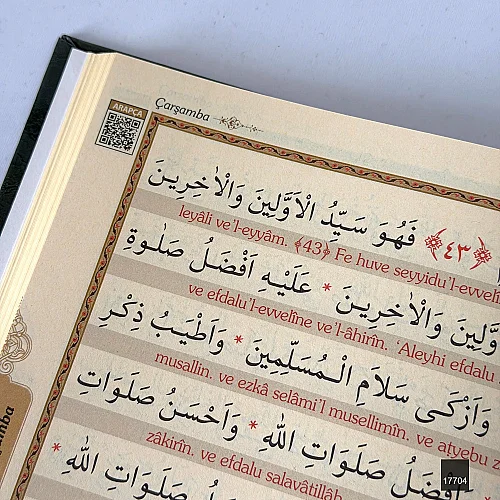 Çarşamba
ARAPÇA
﴿٤٣﴾ فَهُوَ سَيِّدُ الْاَوَّلِينَ وَالْاٰخِرِينَ
leyâli ve'l-eyyâm. ﴾43﴿ Fe huve seyyidu'l-evvelî
وَّلِينَ وَالْاٰخِرِينَ * عَلَيْهِ اَفْضَلُ صَلٰوةِ
ve efdalu'l-evvelîne ve'l-âhirîn. 'Aleyhi efdalu
وَاَزْكَى سَلَامِ الْمُسَلِّمِينَ * وَاَطْيَبُ ذِكْرِ
musallîn. ve ezkâ selâmi'l musellimîn. ve atyebu z
* وَاَحْسَنُ صَلَوَاتِ
zâkirîn. ve efdalu salavâtillâh
فْضَلُ صَلَوَاتِ اللّٰهِ *
صَلَوَاتِ اللّٰهِ *
amba
17704